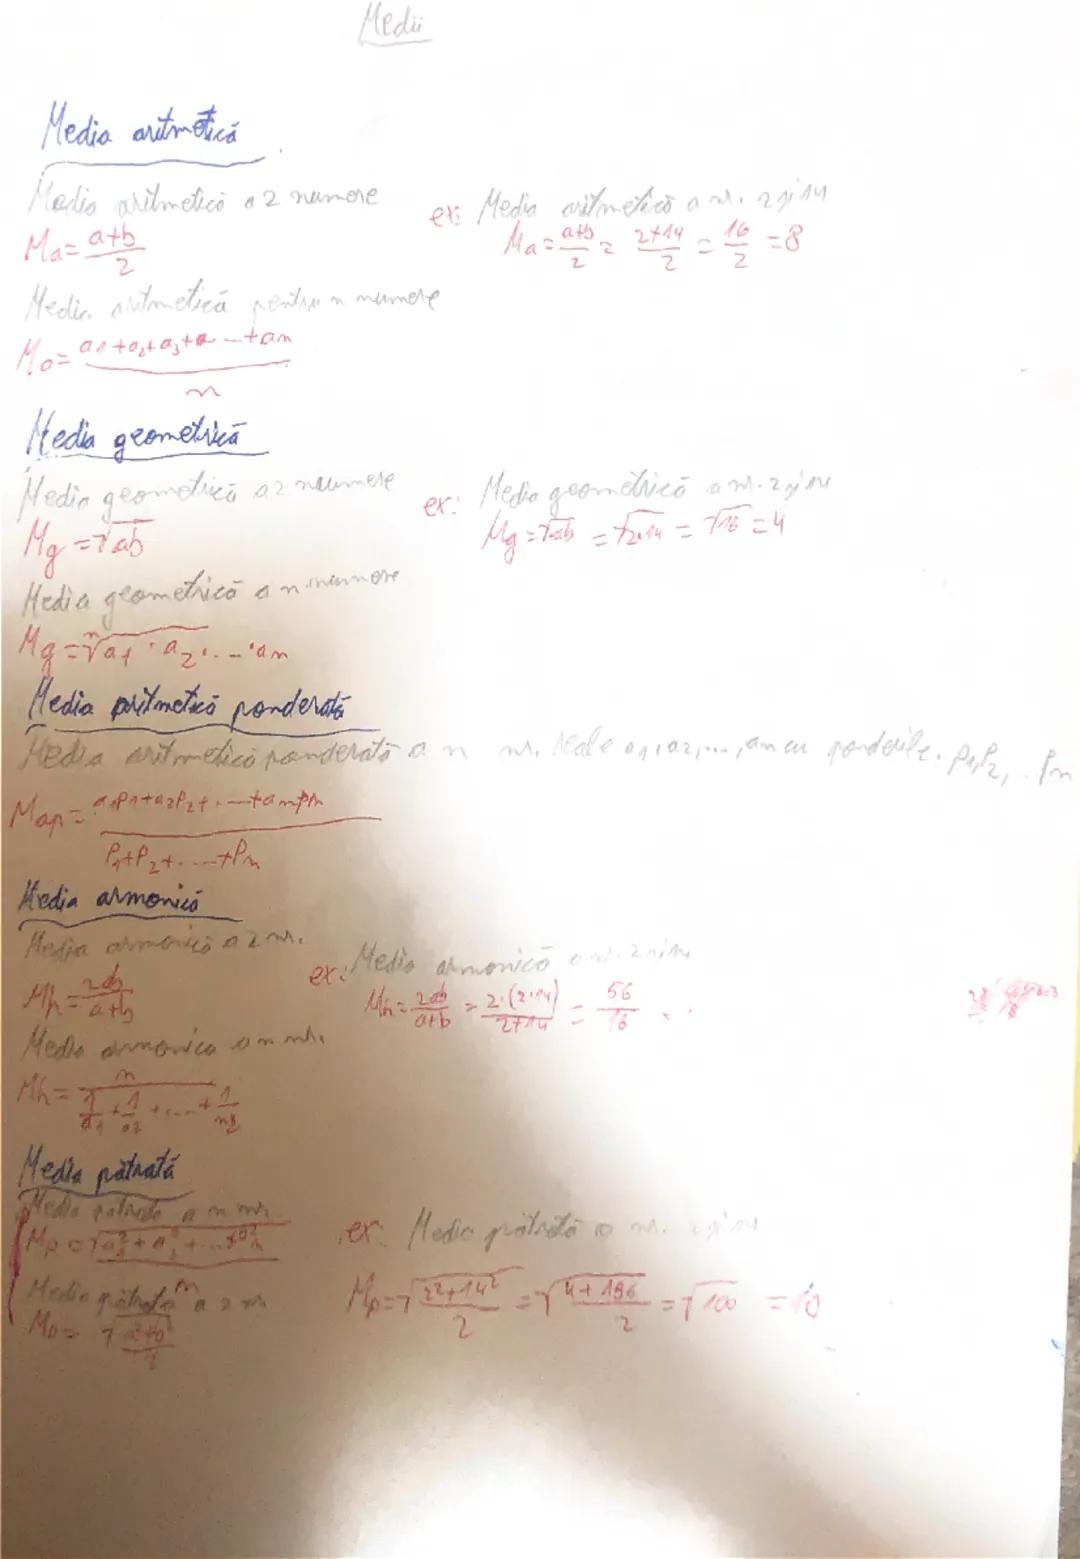 Medii
Media aritmetică
Media aritmetică a 2 numere
Ma = a+b / 2
ex: Media aritmetică a nr. 2 și 14
Ma = a+b / 2 = 2+14 / 2 = 16 / 2 = 8
Media aritmetică pentru n numere
Ma = a1+a2+a3+ ... +an / n
Media geometrică
Media geometrică a 2 numere
Mg = √ab
ex: Media geometrică a nr. 2 și 14
Mg = √ab = √2·14 = √16 = 4
Media geometrică a n numere
Mg = ⁿ√a1 · a2 · ... · an
Media aritmetică ponderată
Media aritmetică ponderată a n nr. reale a1, a2, ..., an cu ponderile p1, p2, .. pn
Map = a1p1+a2p2+...+anpn / p1+p2+....+pn
Media armonică
Media armonică a 2 nr.
Mh = 2ab / a+b
ex: Media armonică a nr. 2 și 14
Mh = 2ab / a+b = 2·(2·14) / 2+14 = 56 / 16
Media armonica a n nr.
Mh = n / 1/a1 + 1/a2 + ....+ 1
Media pătrată
Media patrata a n nr.
Mp = √a1²+a2²+...+an² / n
Media pătrata a 2 nr
Mp = √a²+b² / 2
ex: Media pătrată a nr. 2 și 14
Mp = √2²+14² / 2 = √4+196 / 2 = √100 = 10